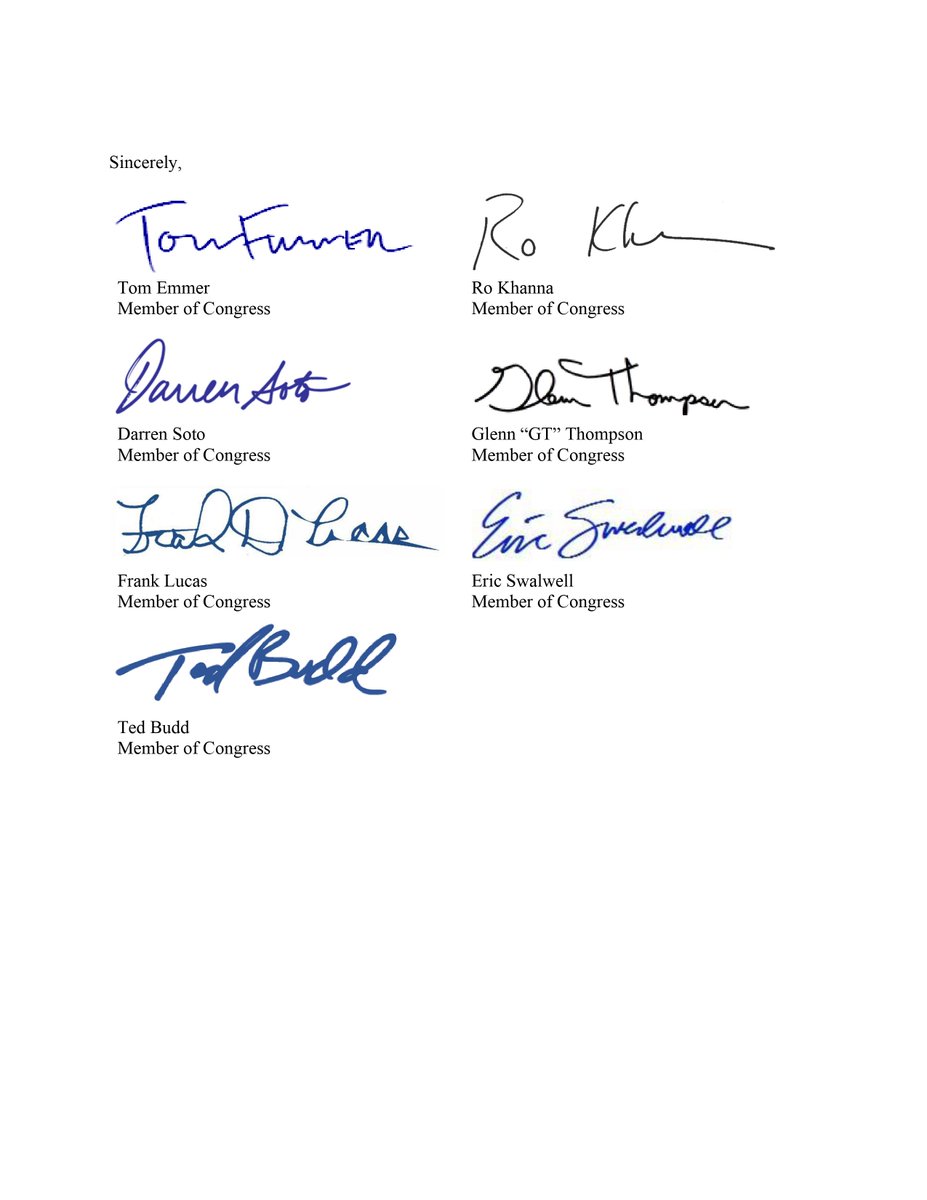 Sincerely,
Tom Emmer
Ro Khanna
Tom Emmer
Member of Congress
Ro Khanna
Member of Congress
Darren Soto
Glenn Thompson
Darren Soto
Member of Congress
Glenn “GT” Thompson
Member of Congress
Frank D Lucas
Eric Swalwell
Frank Lucas
Member of Congress
Eric Swalwell
Member of Congress
Ted Budd
Ted Budd
Member of Congress